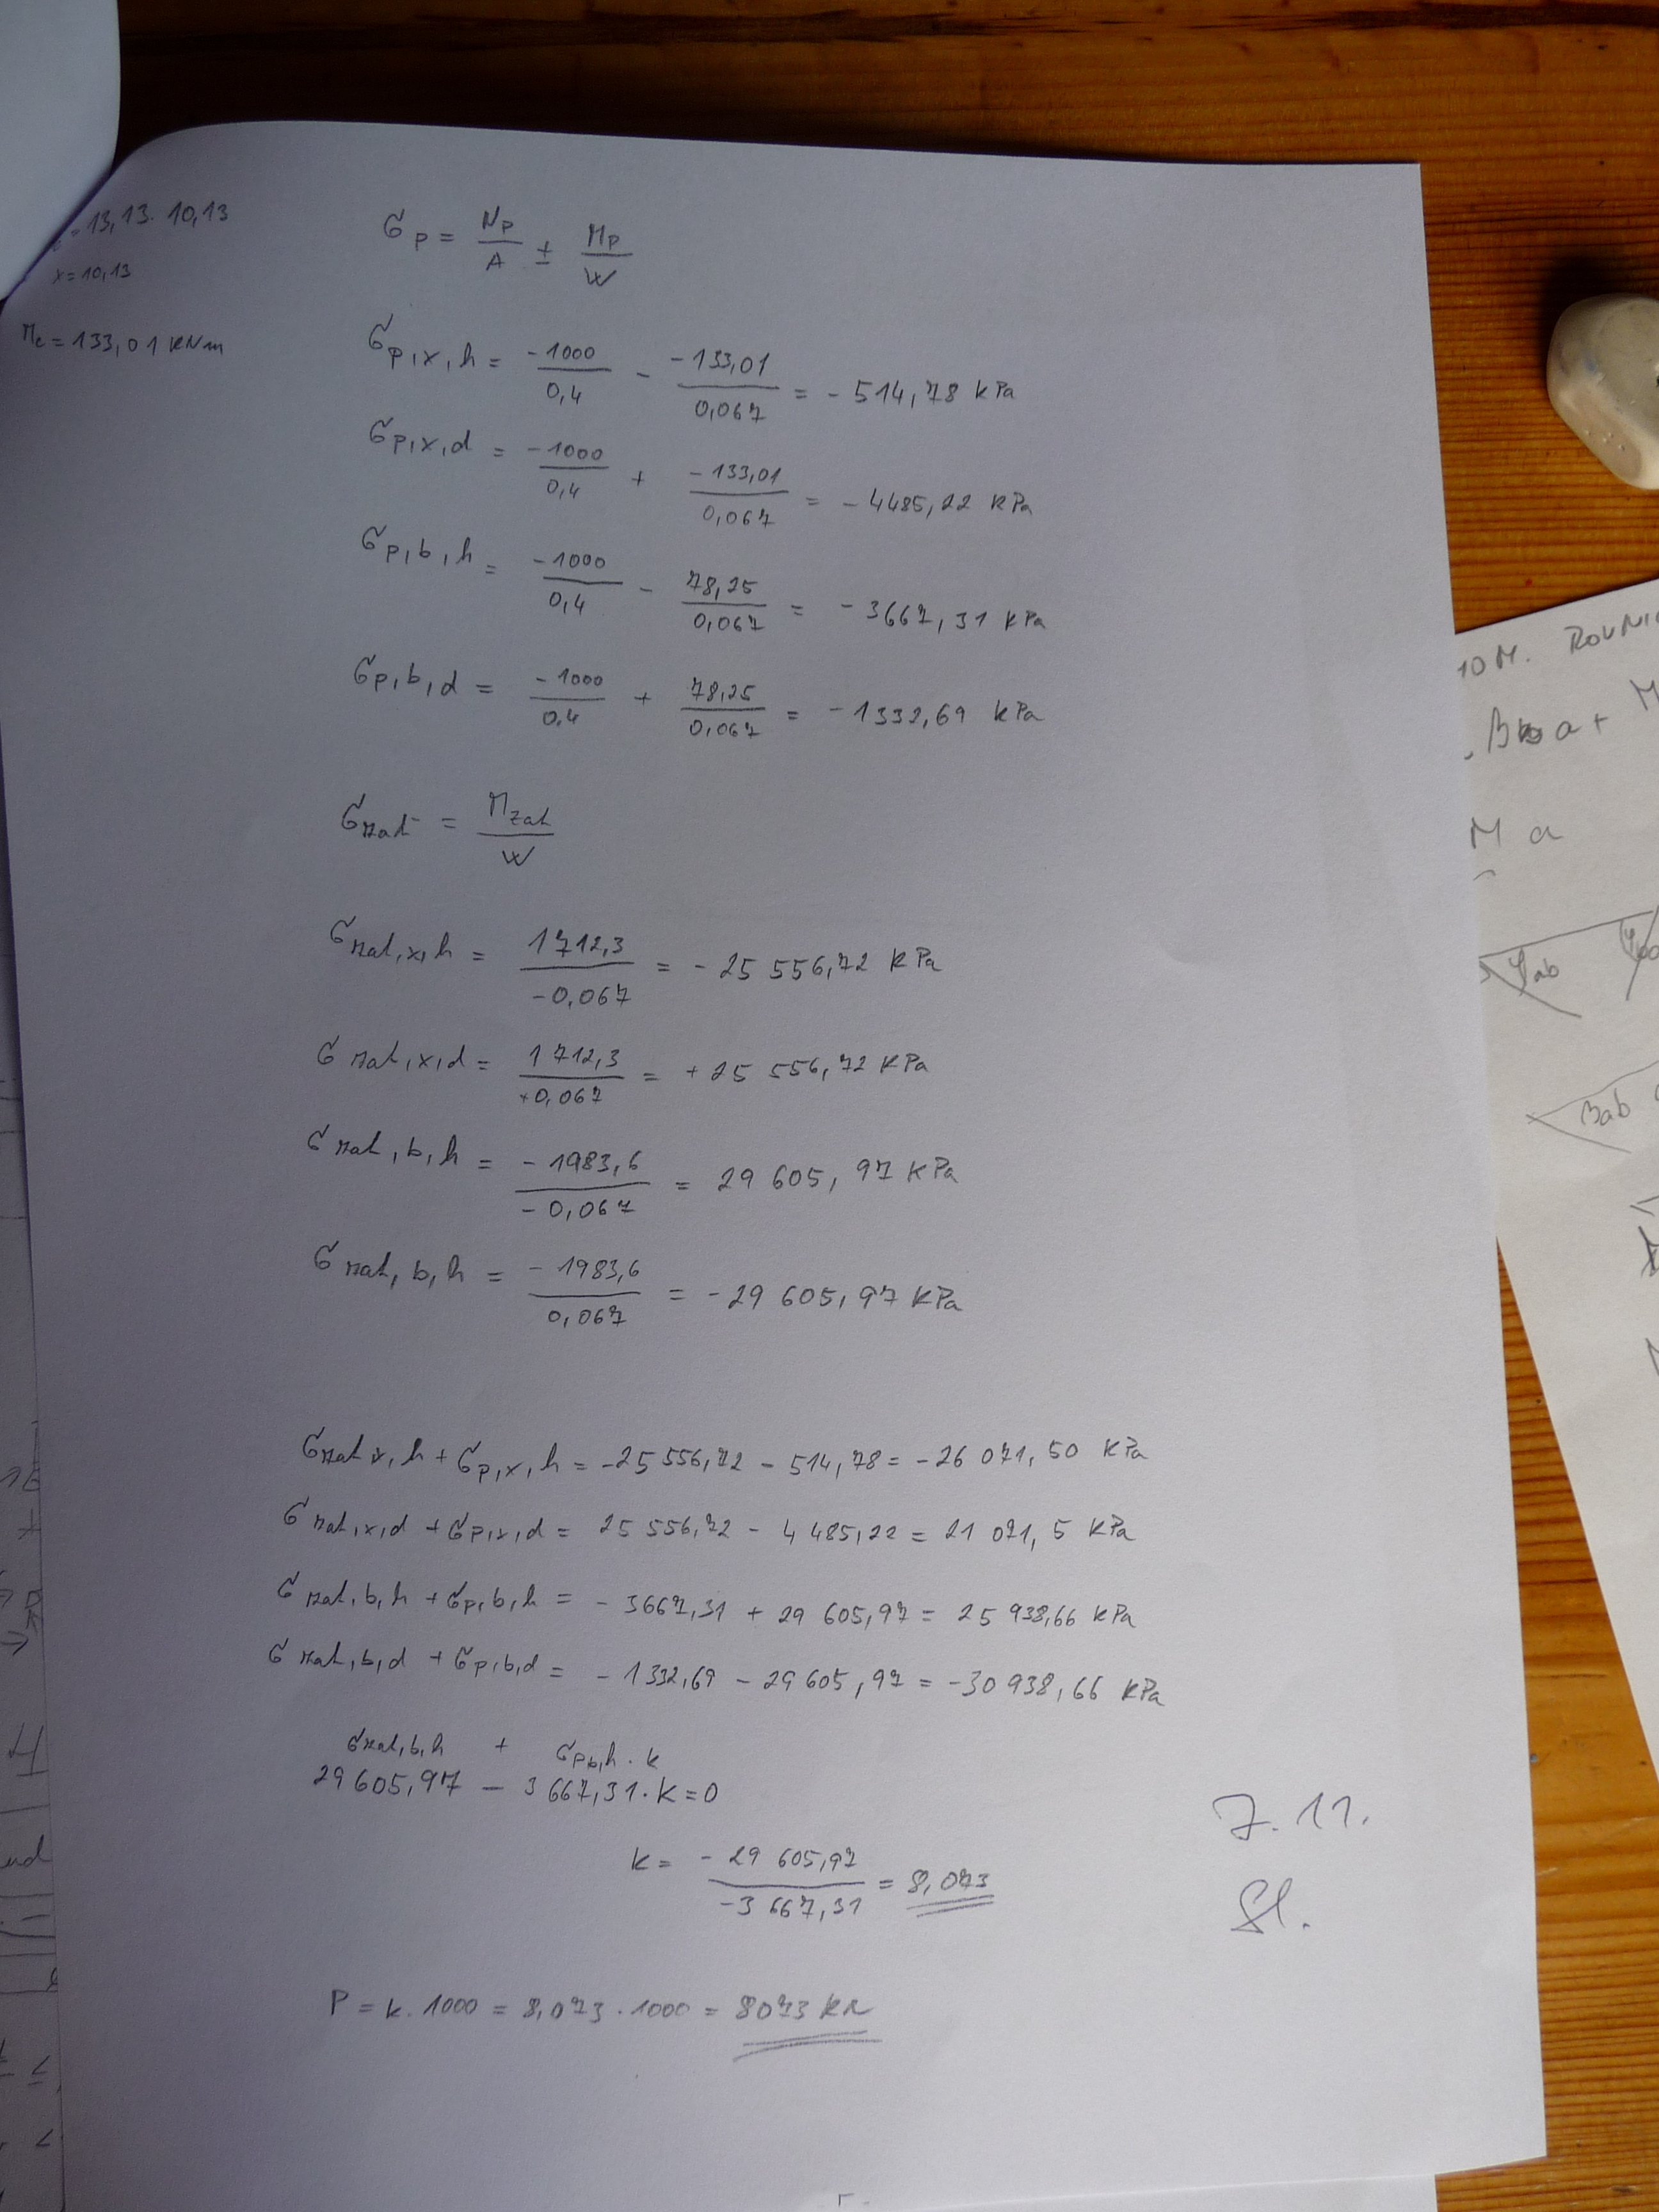 = 13,13 . 10,13
x = 10,13
Mc = 133,01 kNm
σp = Np/A ± Mp/W
σp,x,h = -1000/0,4 - -133,01/0,067 = - 514,78 kPa
σp,x,d = -1000/0,4 + -133,01/0,067 = - 4485,22 kPa
σp,b,h = -1000/0,4 - 78,25/0,067 = - 3667,31 kPa
σp,b,d = -1000/0,4 + 78,25/0,067 = - 1332,69 kPa
σzat = Mzat/W
σzat,x,h = 1712,3/-0,067 = - 25 556,72 kPa
σzat,x,d = 1712,3/+0,067 = + 25 556,72 kPa
σzat,b,h = -1983,6/-0,067 = 29 605,97 kPa
σzat,b,h = -1983,6/0,067 = -29 605,97 kPa
σzat x,h + σp,x,h = -25 556,72 - 514,78 = -26 071,50 kPa
σzat,x,d + σp,x,d = 25 556,72 - 4 485,22 = 21 071,5 kPa
σzat,b,h + σp,b,h = - 3667,31 + 29 605,97 = 25 938,66 kPa
σzat,b,d + σp,b,d = - 1 332,69 - 29 605,97 = -30 938,66 kPa
σzat,b,h + σpb,h . k
29 605,97 - 3 667,31 . k = 0
k = - 29 605,97/-3 667,31 = 8,073
P = k . 1000 = 8,073 . 1000 = 8073 kN
7. 11.
Sl.
10 M. ROVNI
B a +
M a
φab
βab